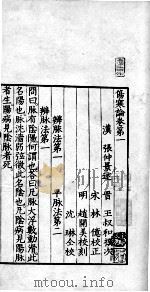 傷寒論卷第一
漢　張仲景述　晉　王叔和撰次
宋　林　億校正
明　趙開美校刻
沈　琳仝校
辨脉法第一　平脉法第二
辨脉法第一
問曰脉有陰陽何謂也荅曰凡脉大浮數動滑此
名陽也脉沈濇弱弦微此名陰也凡陰病見陽脉
者生陽病見陰脉者死